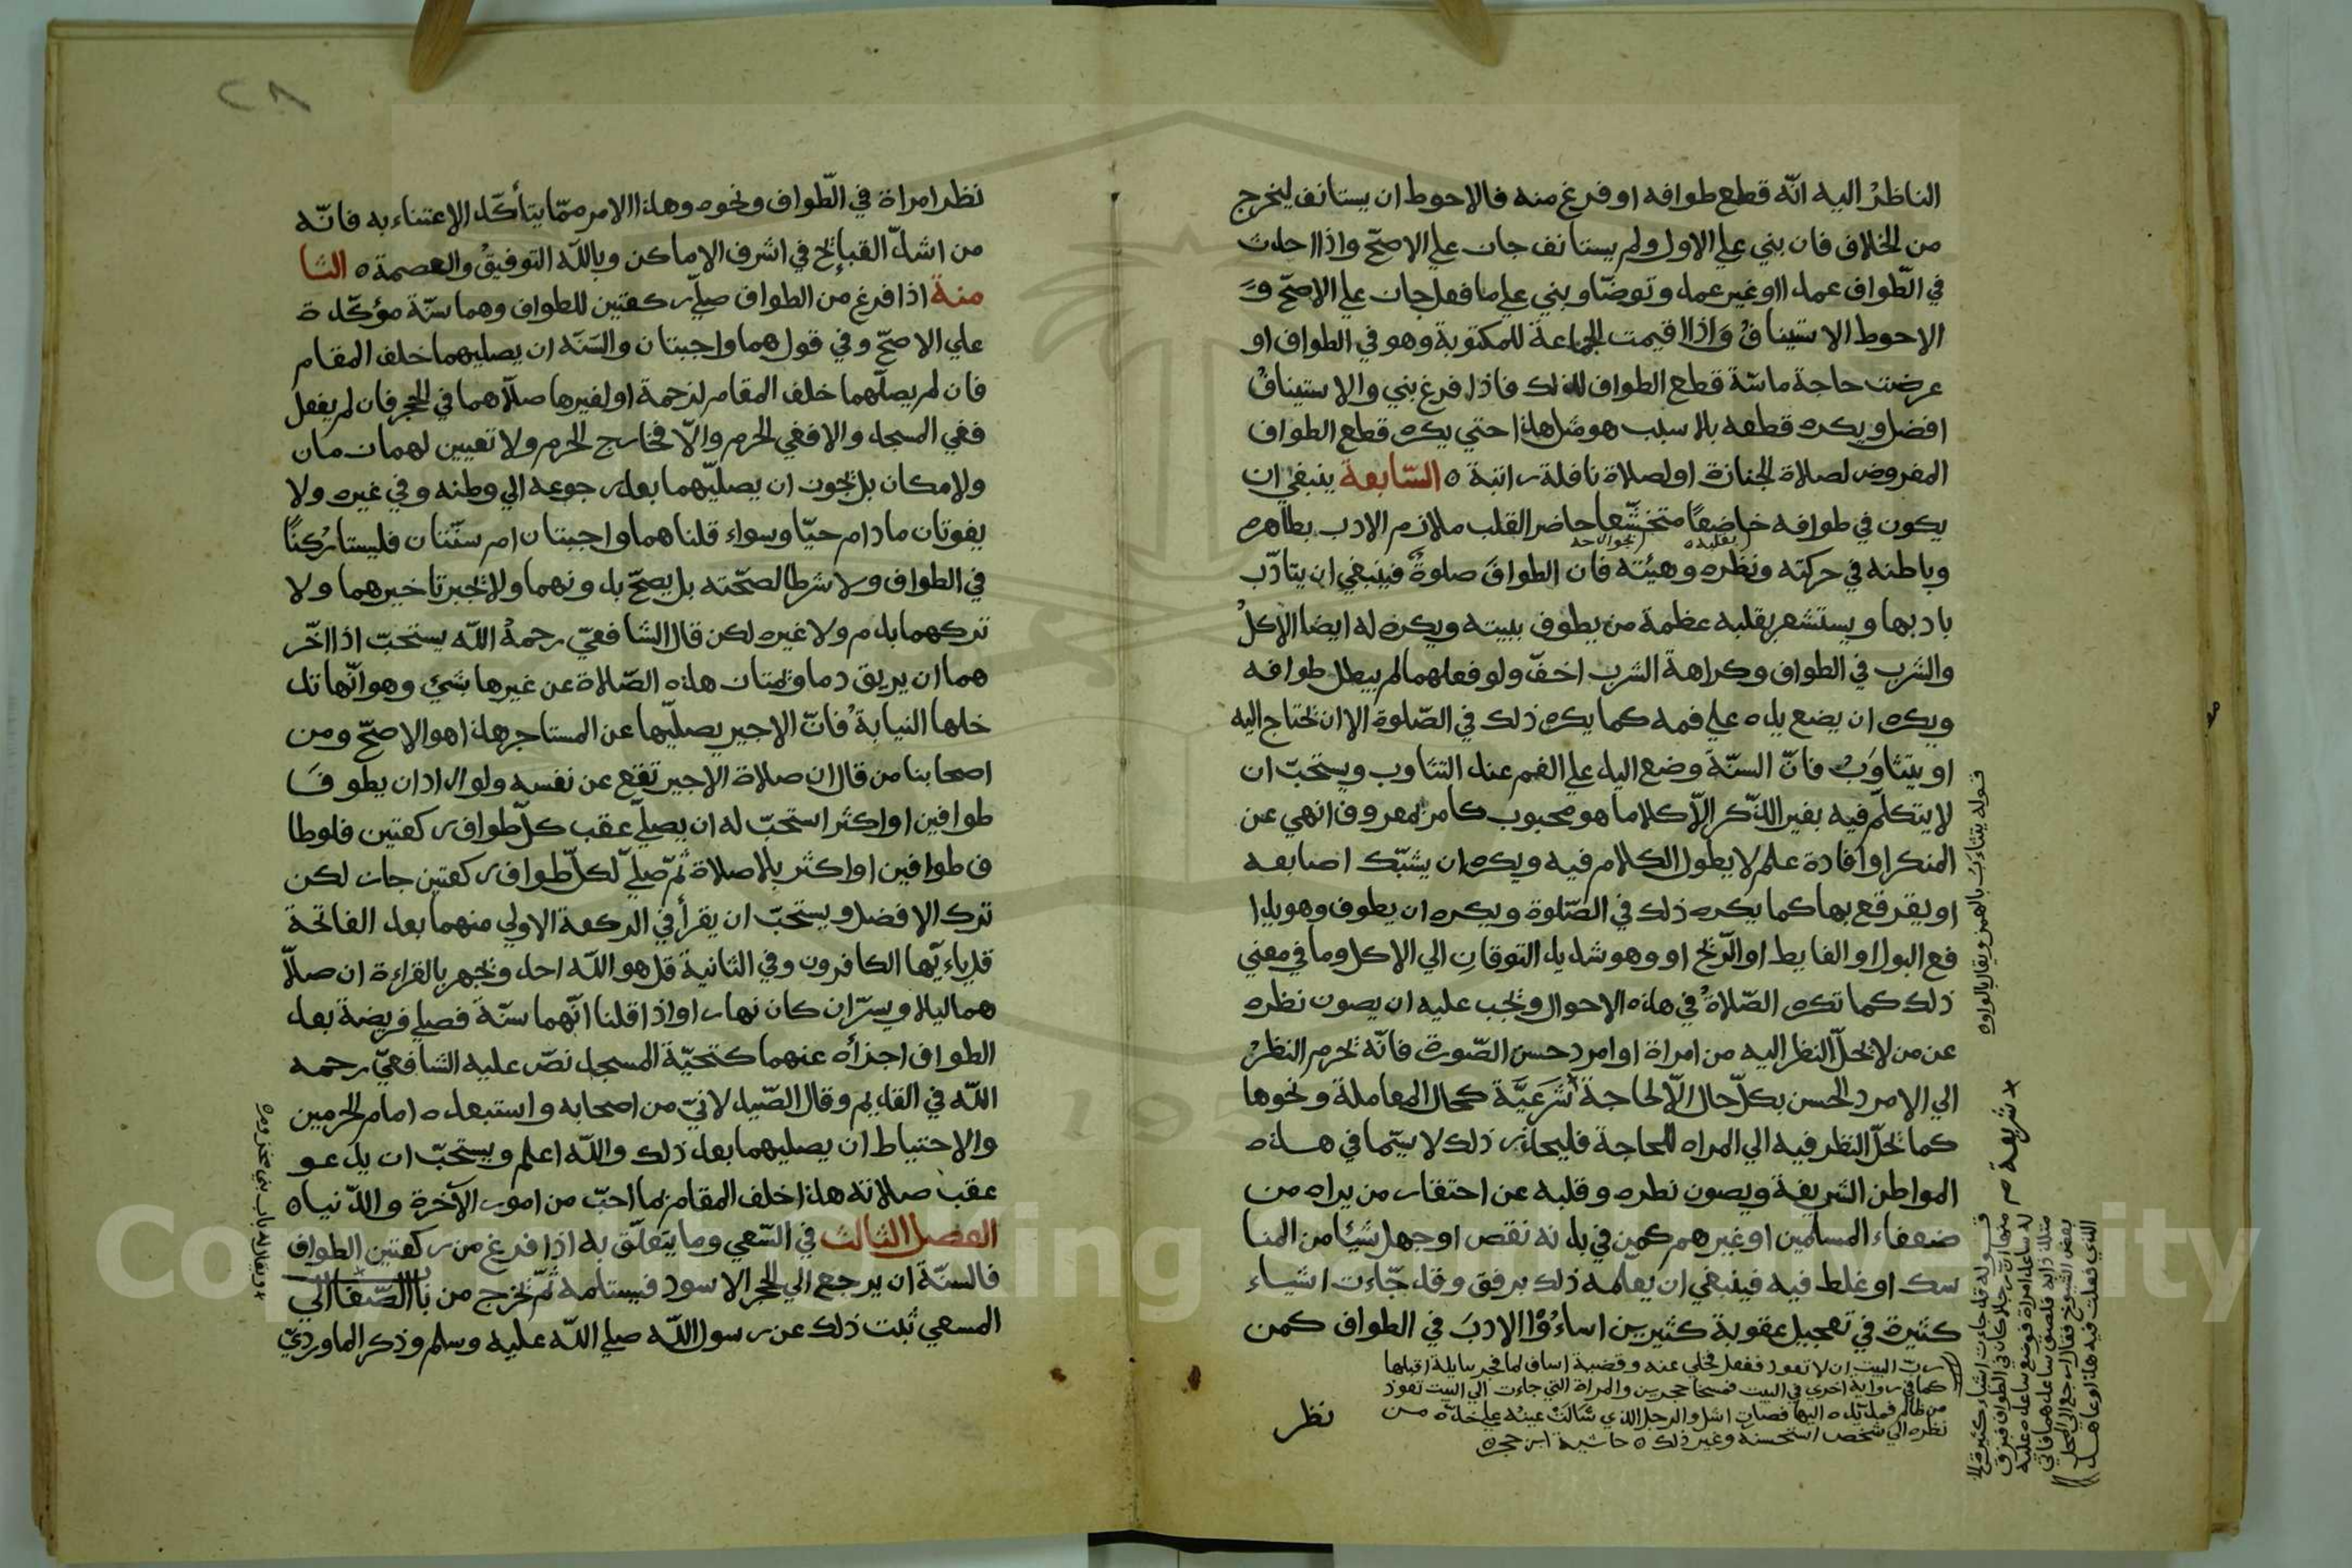 الناظرُ اليه انّه قطع طوافه او فرغ منه فالاحوط ان يستانف ليخرج
من الخلاف فان بني علي الاول ولم يستانف جاز علي الاصحّ واذا احدث
في الطّواف عمدا او غير عمد وتوضّا وبني علي ما فعل جاز علي الاصحّ وَ
الاحوط الاستينافُ وَاذا اقيمت الجماعة للمكتوبة وهو في الطواف او
عرضت حاجة ماسّة قطع الطواف لذلك فاذا فرغ بني والاستينافُ
افضل ويكره قطعه بلا سبب هو مثل هذا حتي يكره قطع الطواف
المفروض لصلاة الجنازة او لصلاة نافلة راتبة ٥ السّابعة ينبغي ان
يكون في طوافه خاضعًا متخشّعا حاضر القلب ملازم الادب بظاهره
بقلبه بجوارحه
وباطنه في حركته ونظره وهيئته فان الطوافَ صلوةٌ فينبغي ان يتادّب
بادبها ويستشعر بقلبه عظمة من يطوف ببيته ويكره له ايضا الاكلُ
والشرب في الطواف وكراهة الشرب اخفّ ولو فعلهما لم يبطل طوافه
ويكره ان يضع يده علي فمه كما يكره ذلك في الصّلوة الا ان يحتاج اليه
او يتثاوَبُ فانّ السنّة وضع اليد علي الفم عند التثاوب ويستحبّ ان
لا يتكلّم فيه بغير الذّكر الّا كلاما هو محبوب كامر بمعروف او نهي عن
المنكر او افادة علم لا يطول الكلام فيه ويكره ان يشبّك اصابعه
او يفرقع بها كما يكره ذلك في الصّلوة ويكره ان يطوف وهو يدا
فع البول او الغايط او الرّيح او وهو شديد التوقانِ الي الاكل وما في معني
ذلك كما تكره الصّلاةُ في هذه الاحوال ويجب عليه ان يصون نظره
عن من لا يحلّ النظر اليه من امراة او امرد حسن الصّورة فانّه يحرم النظرُ
الي الامرد الحسن بكلّ حال الّا لحاجة شَرَعيَّة كحال المعاملة ونحوها
كما يحلّ النظر فيه الي المراه للحاجة فليحذر ذلك لا سيّما في هذه
المواطن الشريفة ويصون نظره وقلبه عن احتقار من يراه من
ضعفاء المسلمين او غيرهم كمن في بدنه نقص او جهل شيئا من المنا
سك او غلط فيه فينبغي ان يعلّمه ذلك برفق وقد جّاءت اشياء
كثيرة في تعجيل عقوبة كثيرين اساءُوْا الادبَ في الطواف كمن
ربّ البيت ان لا تعود ففعل فخلي عنه وقضية اساف لما فجر بنايلة او قبلها
كما في رواية اخري في البيت فمسخا حجرين والمراة التي جاءت الي البيت تعوذ
من ظالم فمد يّده اليها فصار اشل والرجل الذي سَالَتْ عينُه علي خدّه من
نظره الي شخص استحسنه وغير ذلك ٥ حاشية ابن حجر ٥
نظر
قوله يتثاءبُ بالهمز ويقال بالواو ٥
شريعة
قوله قد جاءت اشياء كثيرة الخ
منها انّ رجلا كان في الطواف فبرق
له ساعد امراة فوضع ساعده عليه
متلذذا به فلصق ساعدهما فاتي
بعض الشيوخ فقال ارجع الي المحل
الذي فعلت فيه هذا وعاهد
٢٨
نظر امراة في الّطواف ونحوه وهذا الامر ممّا يتأكّد الاعتناء به فانّه
من اشدّ القبائح في اشرف الاماكن وباللّه التوفيقُ والعصمة ٥ الثا
منة اذا فرغ من الطواف صلّي ركعتين للطواف وهما سنّة مؤكّدة
علي الاصحّ وفي قول هما واجبتان والسّنّه ان يصليهما خلف المقام
فان لم يصلّهما خلف المقام لزحمة او لغيرها صلّاهما في الحجر فان لم يفعل
ففي المسجد والا ففي الحرم والّا فخارج الحرم ولا تعيين لهما زمان
ولا مكان بل يجوز ان يصليّهما بعد رجوعه الي وطنه وفي غيره ولا
يفوتان ما دام حيّا وسواء قلنا هما واجبتان ام سنّتان فليستا رُكنًا
في الطواف ولا شرطا لصحّته بل يصحّ بدونهما ولا يجبر تاخيرهما ولا
تركهما بدم ولا غيره لكن قال الشافعيّ رحمهُ اللّه يستحبّ اذا اخّر
هما ان يريق دما وتمتاز هذه الصّلاة عن غيرها بشئ وهو انّها تد
خلها النيابةُ فانّ الاجير يصليّها عن المستاجر هذا هو الاصحّ ومن
اصحابنا من قال ان صلاة الاجير تقع عن نفسه ولو اراد ان يطوفَ
طوافين او اكثر استحبّ له ان يصلّي عقب كلّ طواف ركعتين فلو طا
ف طوافين او اكثر بلا صلاة ثمّ صلّي لكلّ طواف ركعتين جاز لكن
ترك الافضل ويستحبّ ان يقرأ في الركعة الاولي منهما بعد الفاتحة
قل ياءيّها الكافرون وفي الثانية قل هو اللّه احد ويجهر بالقراءة ان صلّا
هما ليلا ويسرّ ان كان نهارا واذا قلنا انّهما سنّة فصلي فريضة بعد
الطواف اجزأه عنهما كتحيّة المسجد نصّ عليه الشافعيّ رحمه
اللّه في القديم وقال الصّيدلانيّ من اصحابه واستبعده امام الحرمين
والاحتياط ان يصليهما بعد ذلك واللّه اعلم ويستحبّ ان يدعو
عقب صلاته هذا خلف المقام بما احبّ من امور الآخرة والدّنيا ٥
الفصل الثالث في السّعي وما يتعلّق به اذا فرغ من ركعتين الطواف
فالسنّة ان يرجع الي الحجر الاسود فيستلمه ثمّ يخرج من باب الصّفا الي
المسعي ثبت ذلك عن رسول اللّه صلي اللّه عليه وسلم وذكر الماورديّ
ويقال له باب بني مخزوم ٥
Copyright © King Saud University
195